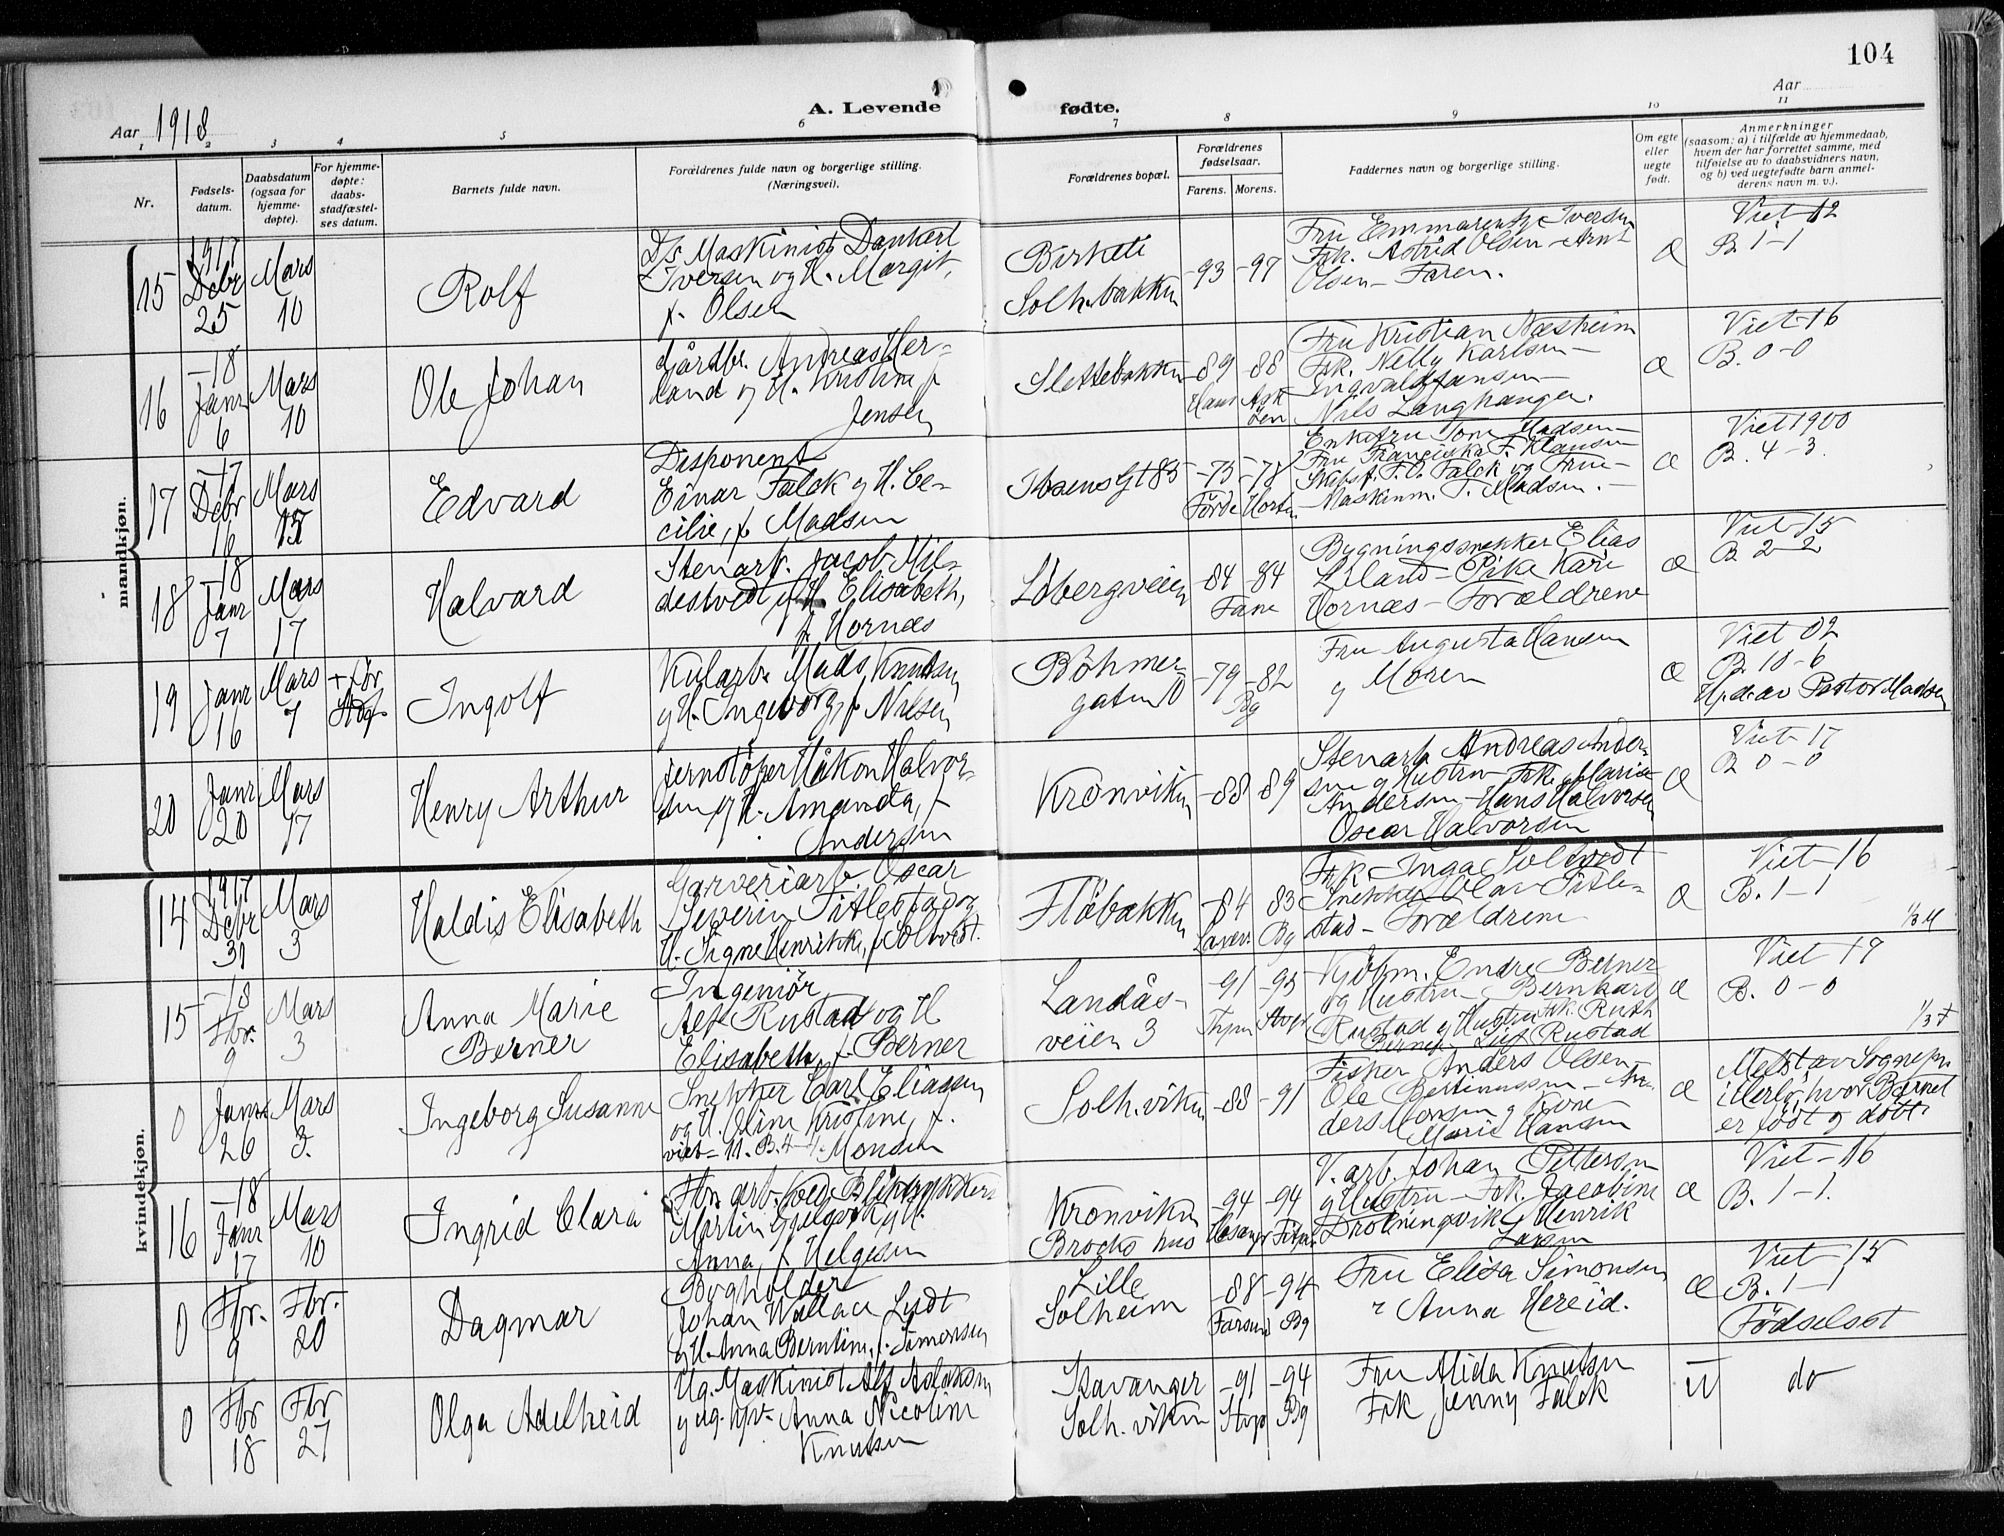 104
Aar 1918
A. Levende fødte.
Aar
1 2 3 4 5 6 7 8 9 10 11
Nr.
Fødsels-
datum.
Daabsdatum
(ogsaa for
hjemme-
døpte).
For hjemme-
døpte:
daabs-
stadfæstel-
ses datum.
Barnets fulde navn.
Forældrenes fulde navn og borgerlige stilling.
(Næringsvei).
Forældrenes bopæl.
Forældrenes
fødselsaar.
Farens. Morens.
Faddernes navn og borgerlige stilling.
Om egte
eller
uegte
født.
Anmerkninger
(saasom: a) i tilfælde av hjemmedaab,
hvem der har forrettet samme, med
tilføielse av to daabsvidners navn,
og b) ved uegtefødte barn anmel-
derens navn m. v.).
mandkjøn.
15
1917
Debr
25
Mars
10
Rolf
Ds. Maskinist Dankert
Iversen og H. Margit,
f. Olsen
Birketi
Solh.bakken
-93 -97
Fru Emmarentze Iversen
Frk. Astrid Olsen - Arnt
Olsen - Faren.
æ
Viet 12
B. 1-1
16
-18
Janr
6
Mars
10
Ole Johan
Gårdbr. Andreas Her-
land og H. Kristine f
Jensen
Slettebakken
-89 -88
Haus Ask
Fru Kristian Næsheim
Frk. Nelly Karlsen -
Ingvald Jansen -
Nils Langhangen.
æ
Viet -16
B. 0-0
17
-17
Debr
16
Mars
15
Edvard
Disponent
Einar Falck og H. Ce-
cilie, f. Madsen
Ibsens Gt 83
-75 -78
Förde Horten
Enkefru Toni Madsen -
Fru Franciska F. Klausen
Skibsf. T. O. Falck og Frue -
Maskinm. T. Madsen. -
æ
Viet 1900
B. 4-3.
18
-18
Janr
7
Mars
17
Halvard
Stenarb. Jacob Mil-
destvedt og H Elisabeth,
f. Hornæs
Löbergveien
-84 -84
Fane
Bygningssnekker Elias
Liland - Pike Kari
Hornæs - Forældrene
æ
Viet -15
B 2-2
19
Janr
16
Mars
7
Ingolf
Kularb. Mads Knutsen
og H. Ingeborg, f. Nilsen
Böhmer
gaten 10
-79 -82
Bg
Fru Augusta Hansen
og Moren
æ
Viet 02
B. 10-6
Hjd. av Pastor Madsen
20
Janr
20
Mars
17
Henry Arthur
Jernstöper Håkon Halvor-
sen og H. Amanda, f
Andersen
Kronviken
-88 89
Stenarb Andreas Ander-
sen og Hustru - Frk. Marie
Andersen - Hans Halvorsen
Oscar Halvorsen
æ
Viet -17
B 0-0
kvindekjøn.
14
1917
Debr
31
Mars
3
Haldis Elisabeth
Garveriarb Oscar
Severin Titlestad og
H. Signe Henrikke, f Soltvedt.
Flöbakken
-84 83
Bg
Frk. Inga Soltvedt
Snekker Olav Title-
stad - Forældrene
æ
Viet -16
B. 1-1
15
-18
Fbr.
9
Mars
3
Anna Marie
Berner
Ingeniør
Alf Rustad og H
Elisabeth, f. Berner
Landås-
veien 3
-91 -93
Kjöbm. Endre Berner
og Hustru - Bernhard
Rustad og Hustru Frk. Ruth
Berner - Leif Rustad
æ
Viet 17
B. 0-0
0
Janr
26
Mars
3.
Ingeborg Susanne
Snekker Carl Eliassen
og H. Oline Kristine, f.
viet - 11. B. 4-4. Monsen
Solh.viken
-88 -91
Fisker Anders Olsen
Ole Bertinussen - An-
ders Monsen og Kone
Marie Hansen
æ
Meldt av Sognepr.
i Herlö, hvor Barnet
er födt og döbt
16
-18
Janr
17
Mars
10
Ingrid Clara
Martin Gjelsvik og H.
Anna f Helgesen
Kronviken
Brochs hus
-94 -94
V. arb. Johan Pettersen
og Hustru - Frk. Jacobine
Drotningsvik, Henrik
Larsen
æ
Viet -16
B. 1-1.
0
Fbr.
9
Fbr.
20
Dagmar
Bogholder
Johan Wallace Lydt
og H. Anna Berntine, f. Simonsen
Lille
Solheim
-88 -94
Farsund Bg
Fru Elisa Simonsen
" Anna Hereid.
æ
Viet -15
B. 1-1
Födselsst
0
Fbr
18
Fbr
27
Olga Adelheid
Ug. Maskinist Alf Aslaksen
og ug. hpv. Anna Nicoline
Knutsen
Stavanger
Solh. viken
-91 -94
Stvgr Bg
Fru Alida Knutsen
Frk Jenny Falck
u
do